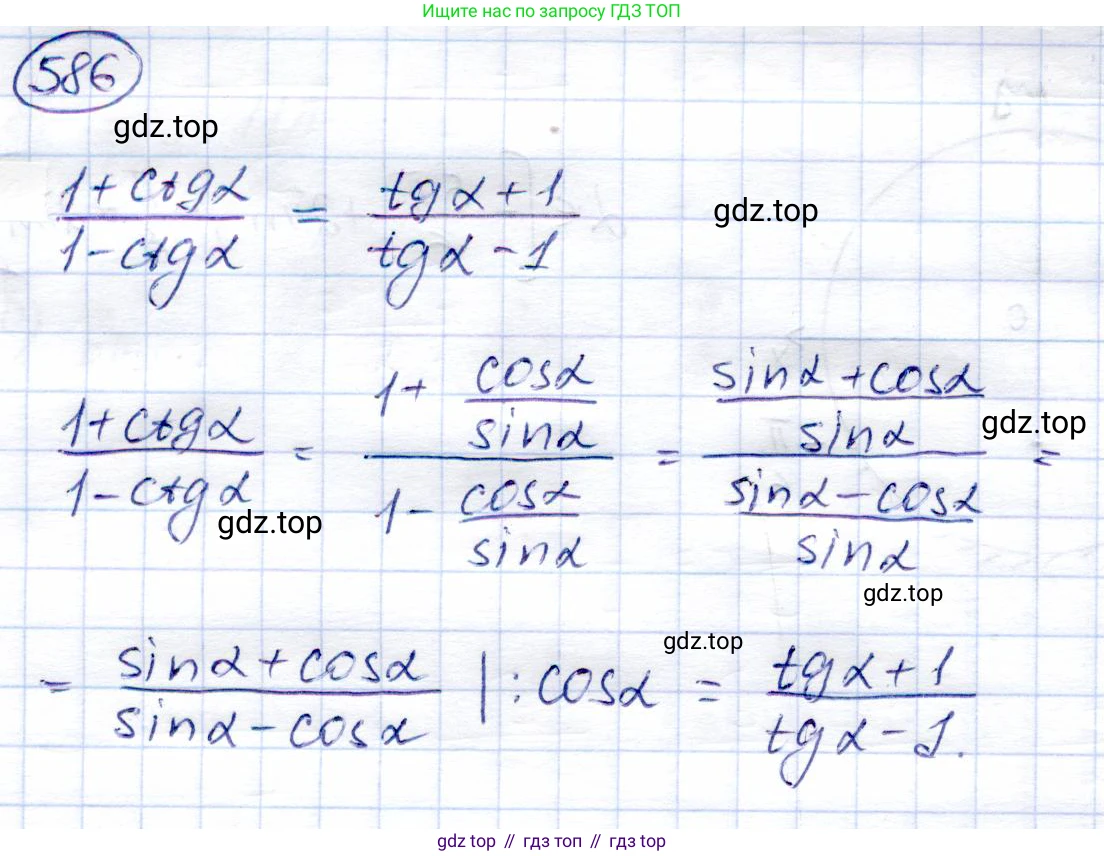 Ищите нас по запросу ГДЗ ТОП
586
gdz.top
(1+ctgα)/(1-ctgα) = (tgα+1)/(tgα-1)
gdz.top
(1+ctgα)/(1-ctgα) = (1+ cosα/sinα)/(1- cosα/sinα) = ((sinα+cosα)/sinα)/((sinα-cosα)/sinα) =
gdz.top
gdz.top
gdz.top
gdz.top
= (sinα+cosα)/(sinα-cosα) | :cosα = (tgα+1)/(tgα-1).
gdz top // гдз топ // гдз top